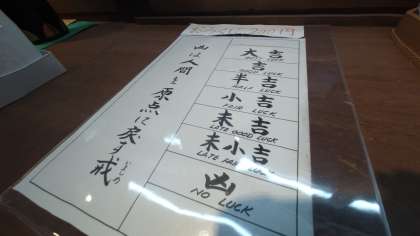 大吉
吉
GOOD LUCK
半吉
HALF LUCK
小吉
FAIR LUCK
末吉
LATE GOOD LUCK
末小吉
LATE FAIR LUCK
凶
NO LUCK
凶は人間を原点に戻す戒しめ